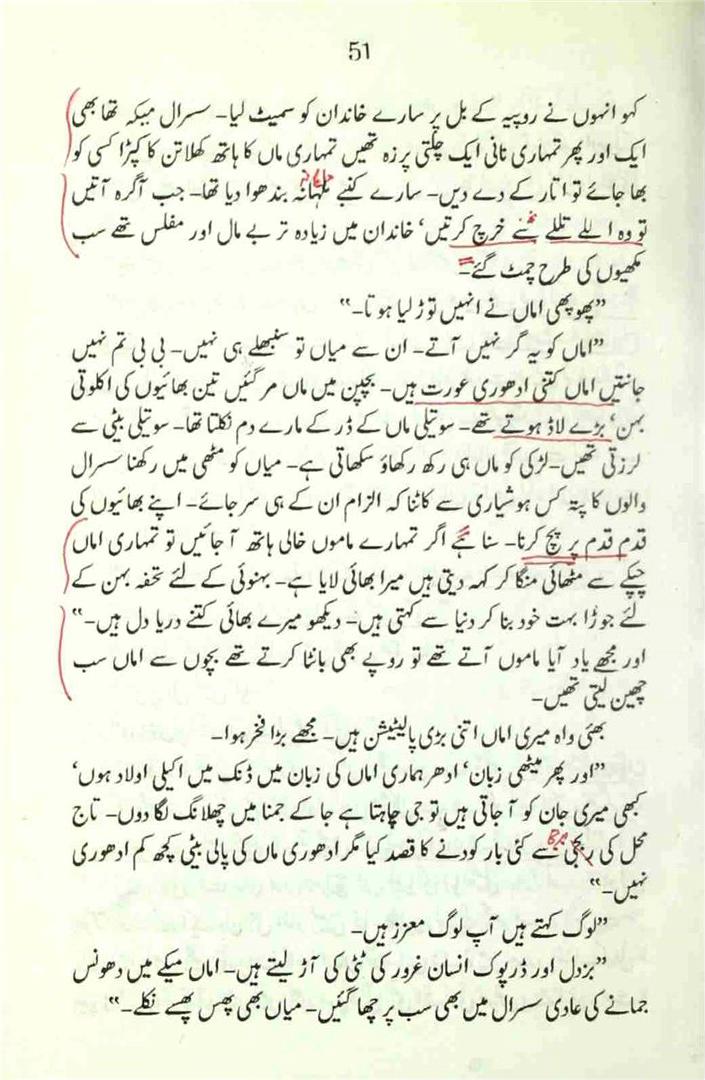 51
کہو انہوں نے روپیہ کے بل پر سارے خاندان کو سمیٹ لیا۔ سسرال میکہ تھا بھی
ایک اور پھر تمہاری نانی ایک چلتی پرزہ تھیں تمہاری ماں کا ہاتھ کھلا تن کا کپڑا کسی کو
بھا جائے تو اتار کے دے دیں۔ سارے کنبے ملہانہ بندھوا دیا تھا۔ جب آگرہ آتیں
تو وہ اللے تللے سے خرچ کرتیں، خاندان میں زیادہ تر بے مال اور مفلس تھے سب
مکھیوں کی طرح چمٹ گئے۔
”پھوپھی اماں نے انہیں توڑ لیا ہوتا۔“
”اماں کو یہ گر نہیں آتے۔ ان سے میاں تو سنبھلے ہی نہیں۔ بی بی تم نہیں
جانتیں اماں کتنی ادھوری عورت ہیں۔ بچپن میں ماں مر گئیں تین بھائیوں کی اکلوتی
بہن، بڑے لاڈ ہوتے تھے۔ سوتیلی ماں کے ڈر کے مارے دم نکلتا تھا۔ سوتیلی بیٹی سے
لرزتی تھیں۔ لڑکی کو ماں ہی رکھ رکھاؤ سکھاتی ہے۔ میاں کو مٹھی میں رکھنا سسرال
والوں کا پتہ کس ہوشیاری سے کاٹنا کہ الزام ان کے ہی سر جائے۔ اپنے بھائیوں کی
قدم قدم پر پچ کرنا۔ سنا ہے اگر تمہارے ماموں خالی ہاتھ آ جائیں تو تمہاری اماں
چپکے سے مٹھائی منگا کر کہہ دیتی ہیں میرا بھائی لایا ہے۔ بہنوئی کے لئے تحفہ بہن کے
لئے جوڑا بہت خود بنا کر دنیا سے کہتی ہیں۔ دیکھو میرے بھائی کتنے دریا دل ہیں۔“
اور مجھے یاد آیا ماموں آتے تھے تو روپے بھی بانٹا کرتے تھے بچوں سے اماں سب
چھین لیتی تھیں۔
بھئی واہ میری اماں اتنی بڑی پالیٹیشن ہیں۔ مجھے بڑا فخر ہوا۔
”اور پھر میٹھی زبان، ادھر ہماری اماں کی زبان میں ڈنک میں اکیلی اولاد ہوں،
کبھی میری جان کو آ جاتی ہیں تو جی چاہتا ہے جا کے جمنا میں چھلانگ لگا دوں۔ تاج
محل کی برجی سے کئی بار کودنے کا قصد کیا مگر ادھوری ماں کی پالی بیٹی کچھ کم ادھوری
نہیں۔“
”لوگ کہتے ہیں آپ لوگ معزز ہیں۔
”بزدل اور ڈرپوک انسان غرور کی ٹٹی کی آڑ لیتے ہیں۔ اماں میکے میں دھونس
جمانے کی عادی سسرال میں بھی سب پر چھا گئیں۔ میاں بھی پھس پھسے نکلے۔“